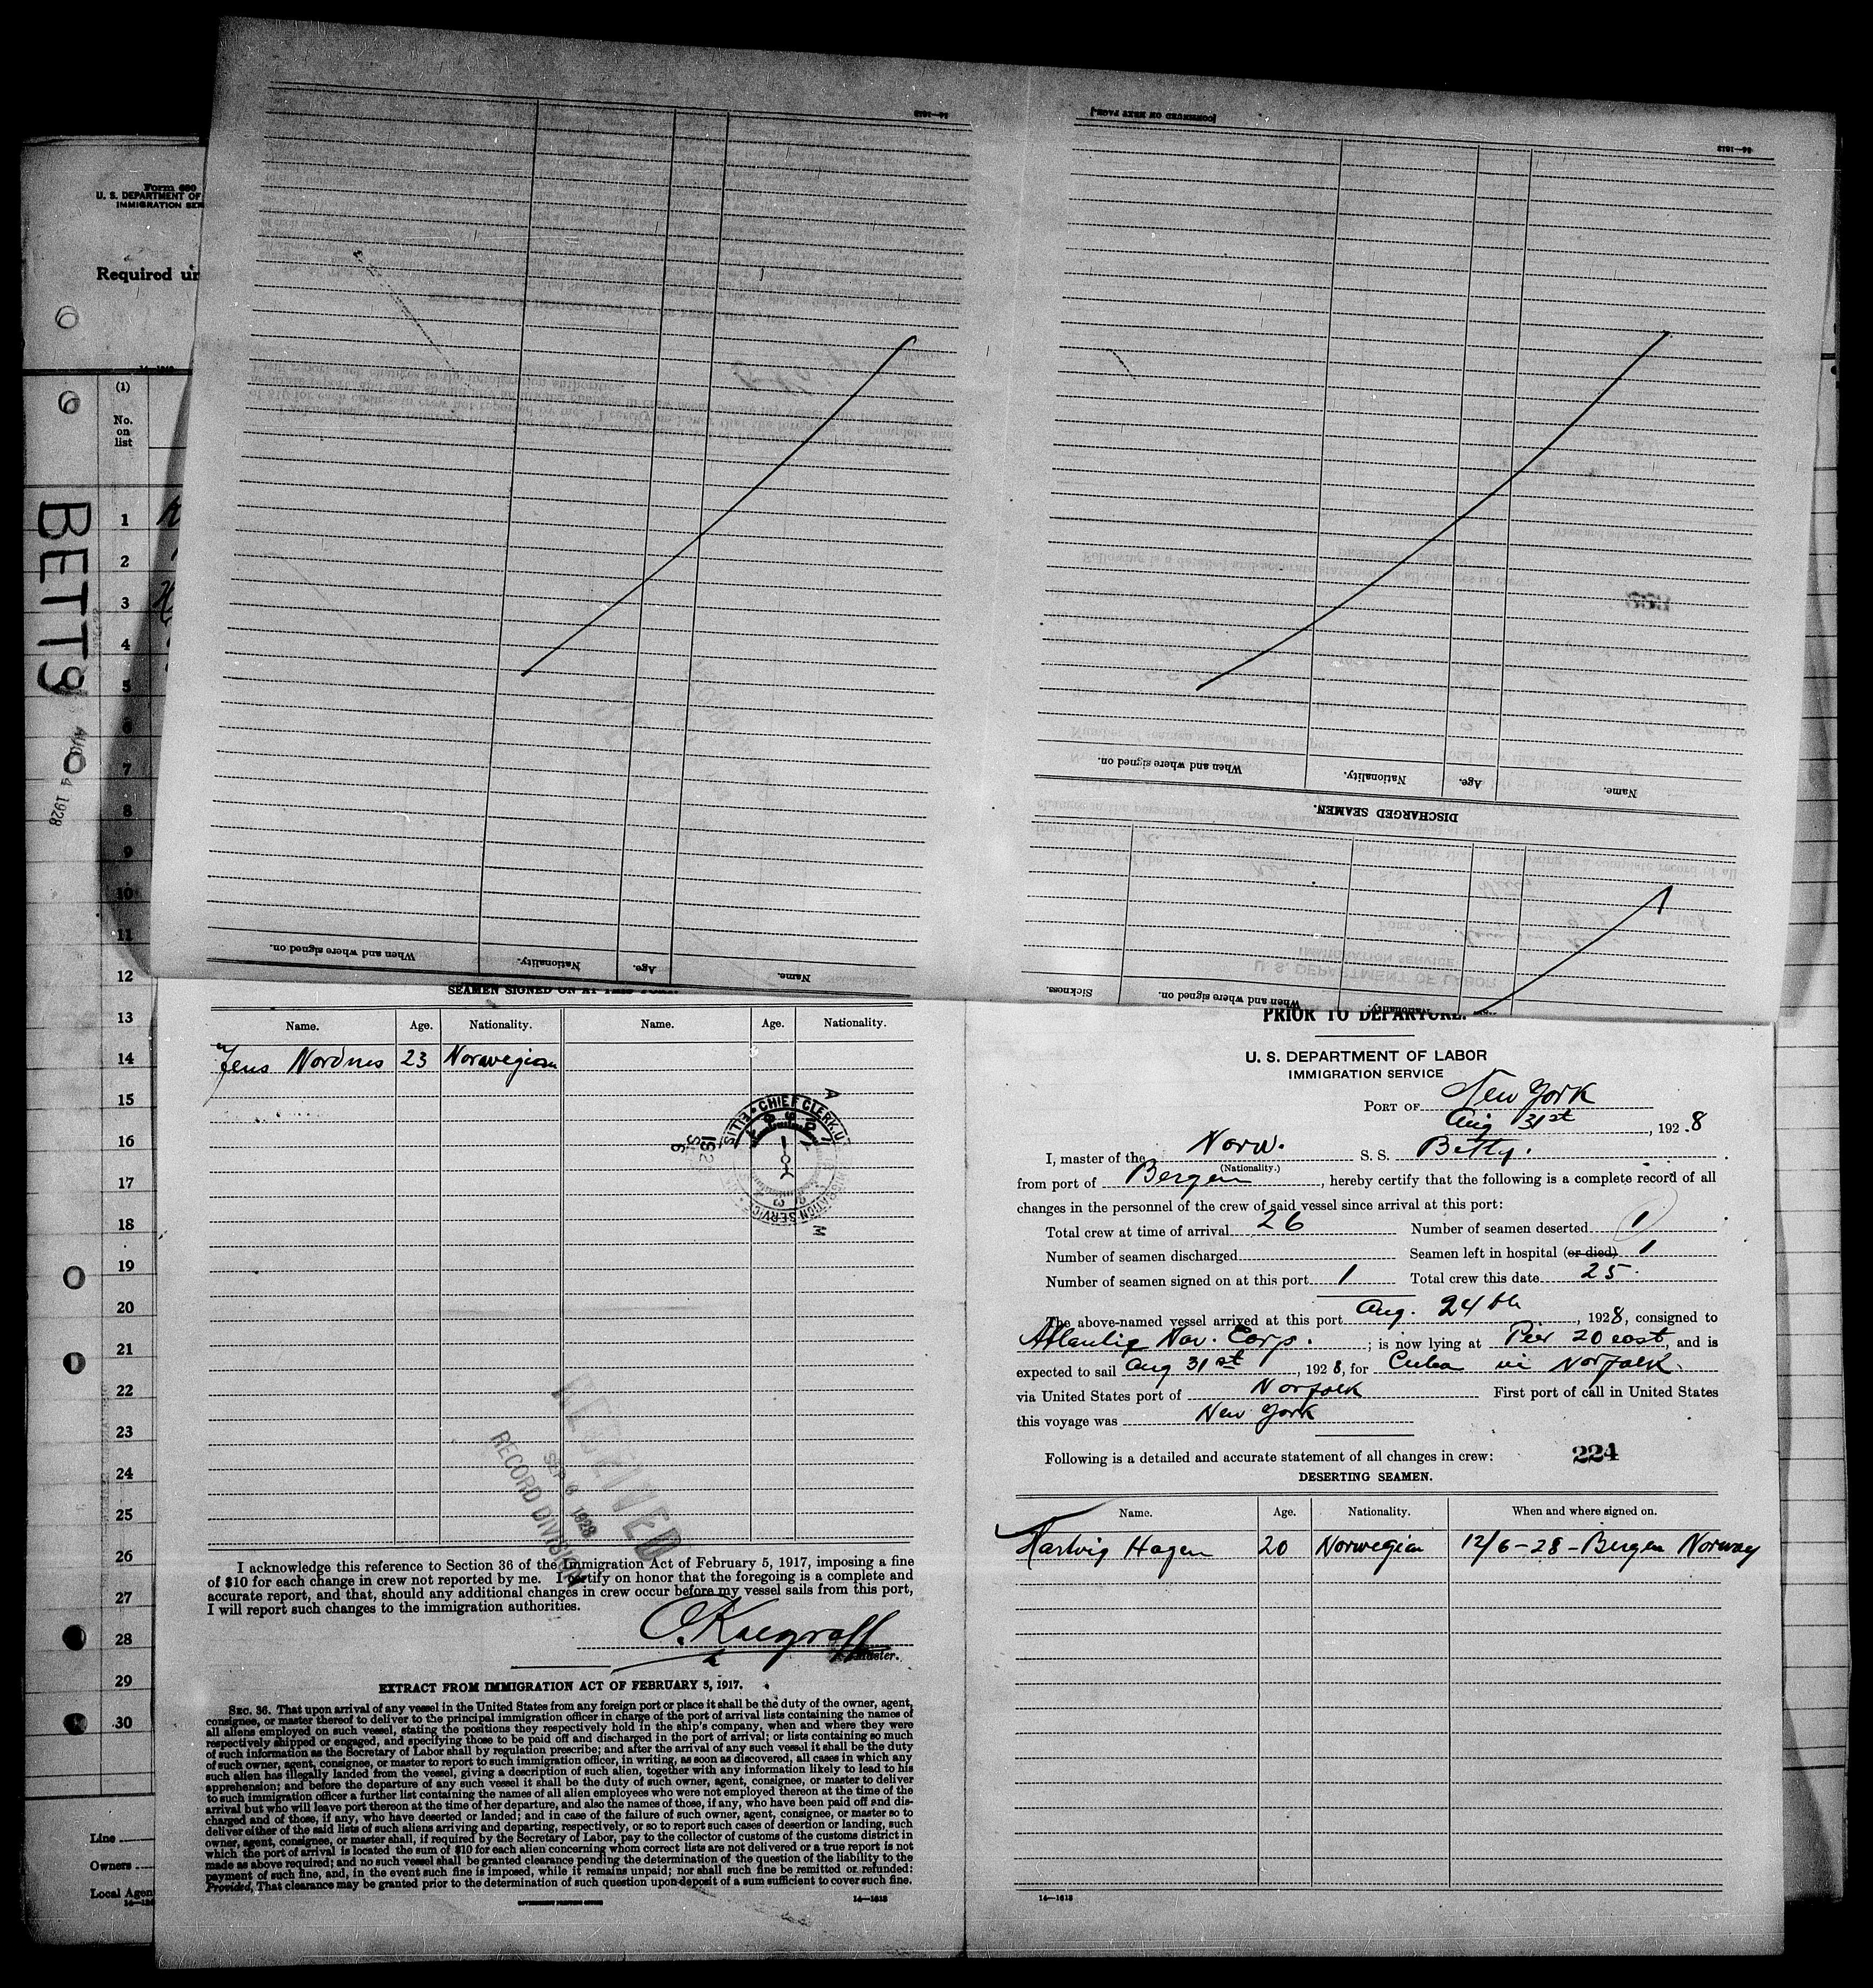 Form 680
U. S. DEPARTMENT OF
IMMIGRATION SER
Required un
(1)
No.
on
list
BETTY
AUG 24 1928
1
2
3
4
5
6
7
8
9
10
11
12
13
14
15
16
17
18
19
20
21
22
23
24
25
26
27
28
29
30
Line
Owners
Local Agen
14—1613
[CONTINUED ON NEXT PAGE.]
14—1613
When and where signed on.
Nationality.
Age.
Name.
DISCHARGED SEAMEN.
Name.
Age.
Nationality.
When and where signed on.
Name.
Age.
Nationality.
When and where signed on.
Sickness.
SEAMEN SIGNED ON AT THIS PORT.
Name. Age. Nationality. Name. Age. Nationality.
Jens Nordnes 23 Norwegian
CHIEF CLERK, U.
RECEIVED
SEP 6 1928
RECORD DIVISION
I acknowledge this reference to Section 36 of the Immigration Act of February 5, 1917, imposing a fine
of $10 for each change in crew not reported by me. I certify on honor that the foregoing is a complete and
accurate report, and that, should any additional changes in crew occur before my vessel sails from this port,
I will report such changes to the immigration authorities.
Master.
EXTRACT FROM IMMIGRATION ACT OF FEBRUARY 5, 1917.
SEC. 36. That upon arrival of any vessel in the United States from any foreign port or place it shall be the duty of the owner, agent,
consignee, or master thereof to deliver to the principal immigration officer in charge of the port of arrival lists containing the names of
all aliens employed on such vessel, stating the positions they respectively hold in the ship's company, when and where they were
respectively shipped or engaged, and specifying those to be paid off and discharged in the port of arrival; or lists containing so much
of such information as the Secretary of Labor shall by regulation prescribe; and after the arrival of any such vessel it shall be the duty
of such owner, agent, consignee, or master to report to such immigration officer, in writing, as soon as discovered, all cases in which any
such alien has illegally landed from the vessel, giving a description of such alien, together with any information likely to lead to his
apprehension; and before the departure of any such vessel it shall be the duty of such owner, agent, consignee, or master to deliver
to such immigration officer a further list containing the names of all alien employees who were not employed thereon at the time of the
arrival but who will leave port thereon at the time of her departure, and also the names of those, if any, who have been paid off and dis-
charged and of those, if any, who have deserted or landed; and in case of the failure of such owner, agent, consignee, or master so to
deliver either of the said lists of such aliens arriving and departing, respectively, or so to report such cases of desertion or landing, such
owner, agent, consignee, or master shall, if required by the Secretary of Labor, pay to the collector of customs of the customs district in
which the port of arrival is located the sum of $10 for each alien concerning whom correct lists are not delivered or a true report is not
made as above required; and no such vessel shall be granted clearance pending the determination of the question of the liability to the
payment of such fine, and, in the event such fine is imposed, while it remains unpaid; nor shall such fine be remitted or refunded:
Provided, That clearance may be granted prior to the determination of such question upon deposit of a sum sufficient to cover such fine.
GOVERNMENT PRINTING OFFICE
14—1613
PRIOR TO DEPARTURE.
U. S. DEPARTMENT OF LABOR
IMMIGRATION SERVICE
PORT OF New York
Aug 31st, 1928
I, master of the Norw. S. S. Betty.
(Nationality.)
from port of Bergen, hereby certify that the following is a complete record of all
changes in the personnel of the crew of said vessel since arrival at this port:
Total crew at time of arrival 26 Number of seamen deserted 1
Number of seamen discharged Seamen left in hospital (or died) 1
Number of seamen signed on at this port 1 Total crew this date 25
The above-named vessel arrived at this port Aug. 24th, 1928, consigned to
Atlantic Nav. Corp.; is now lying at Pier 20 east, and is
expected to sail Aug 31st, 1928, for Cuba via Norfolk
via United States port of Norfolk First port of call in United States
this voyage was New York
Following is a detailed and accurate statement of all changes in crew: 224
DESERTING SEAMEN.
Name. Age. Nationality. When and where signed on.
Hartvig Hagen 20 Norwegian 12/6-28-Bergen Norway
14—1613